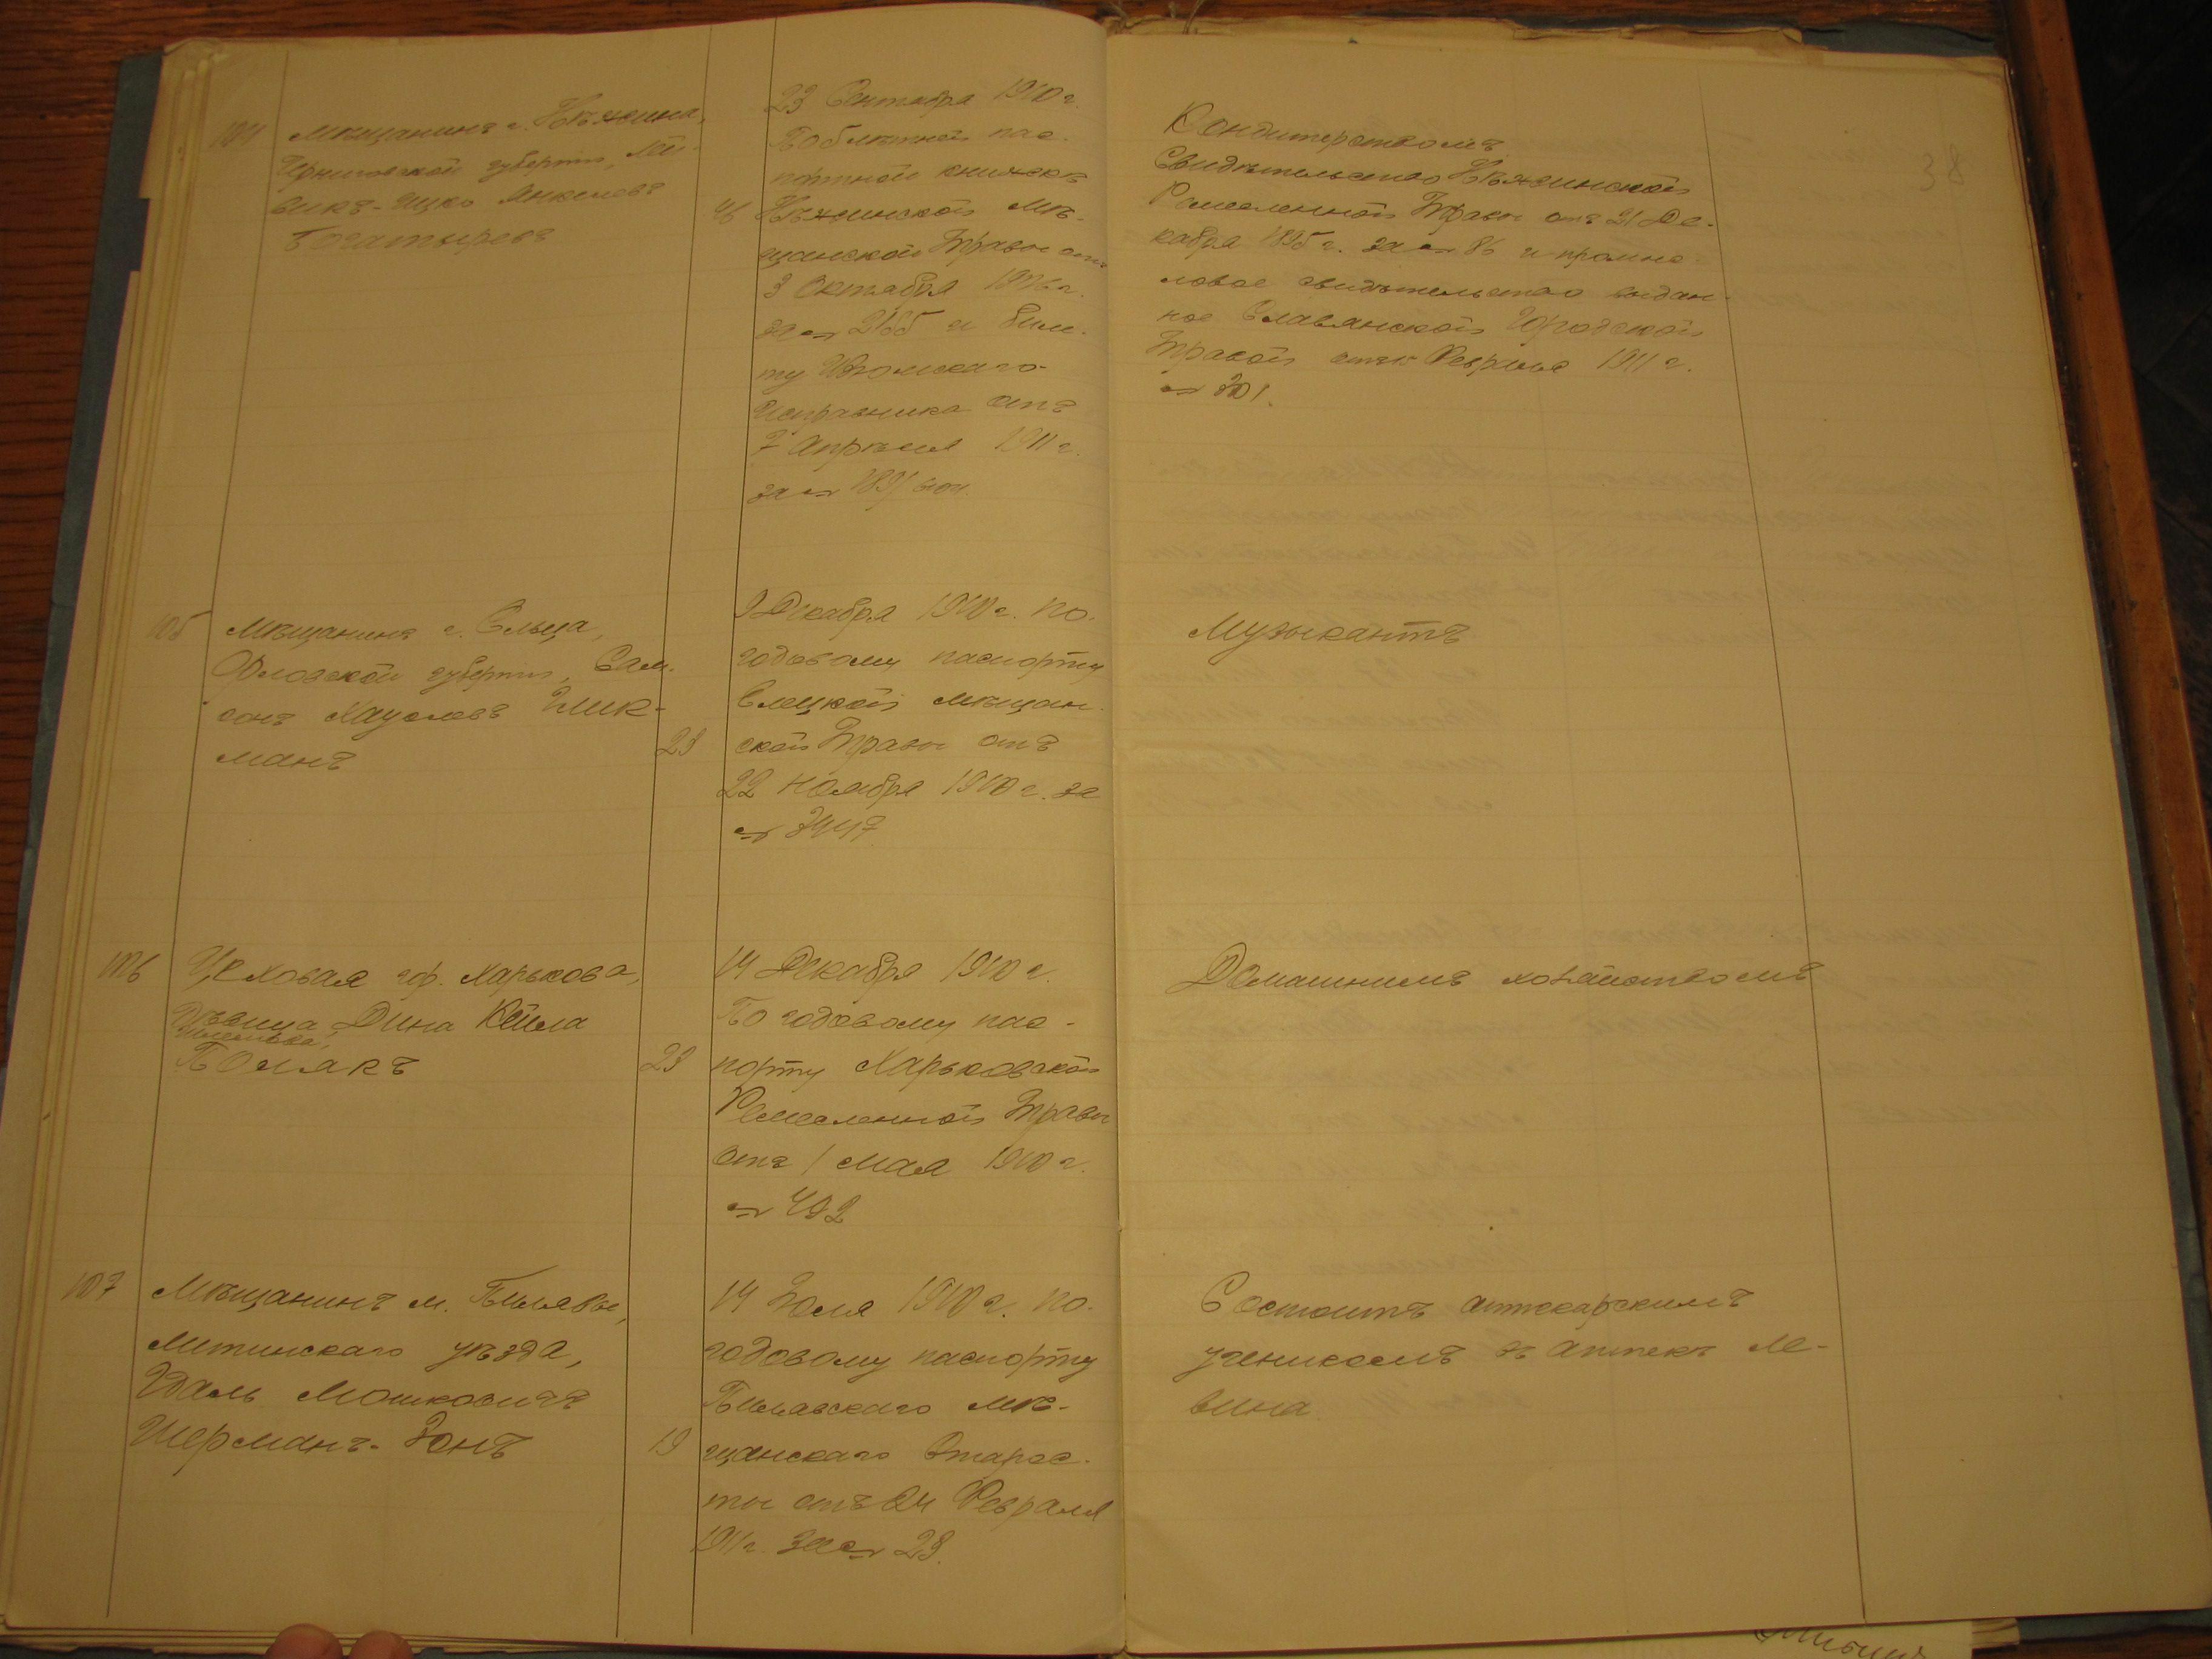 38
104
Мѣщанинъ г. Нѣжина,
Черниговской губерніи, Лей-
викъ-Ицко Янкелевъ
Богатыревъ
46
23 Сентября 1910 г.
По облѣтной пас-
портной книжкѣ
Нѣжинской мѣ-
щанской Управы отъ
3 Октября 1906 г.
за № 2155 и биле-
ту
Исправника отъ
7 Апрѣля 1911 г.
за №
Кондитерствомъ
Свидѣтельство Нѣжинской
Ремесленной Управы отъ 21 Де-
кабря 1895 г. за № 86 и промыс-
ловое свидѣтельство выдан-
ное Славянской Городской
Управой отъ Февраля 1911 г.
№ 301.
105
Мѣщанинъ г. Ельца,
Орловской губерніи, Сам-
сонъ Хаумовъ Глик-
манъ
23
9 Декабря 1910 г. по
годовому паспорту
Елецкой мѣщан-
ской Управы отъ
22 Ноября 1910 г. за
№ 3447
Музыкантъ
106
Цеховая гор. Харькова,
дѣвица Дина Кейла
Шмелевна
Полякъ
23
14 Декабря 1910 г.
По годовому пас-
порту Харьковской
Ремесленной Управы
отъ 1 Мая 1910 г.
№ 492
Домашнимъ хозяйствомъ
107
Мѣщанинъ м. Пилявы,
Литинскаго уѣзда,
Идаль Мошковичъ
Шерманъ-Зонъ
19
14 Юля 1910 г. по
годовому паспорту
Пилявскаго мѣ-
щанскаго Старос-
ты отъ 24 Февраля
1911 г. за № 23.
Состоитъ аптекарскимъ
ученикомъ въ аптекѣ Ле-
вина